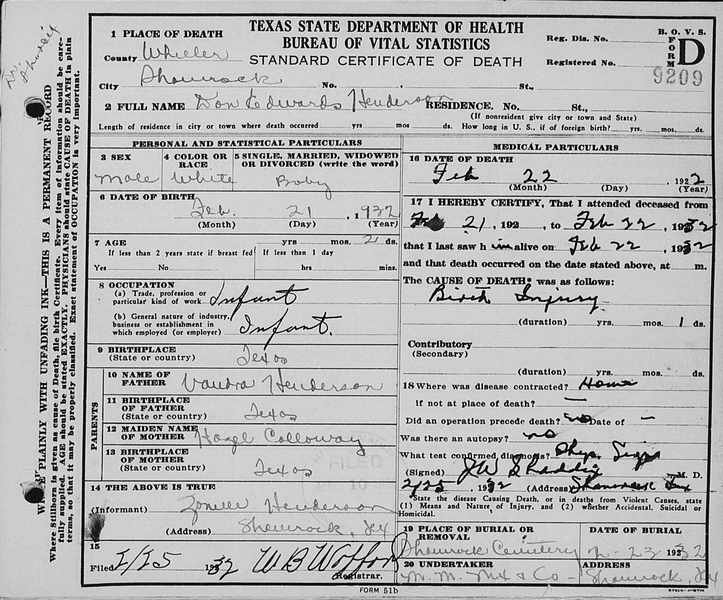 TEXAS STATE DEPARTMENT OF HEALTH
BUREAU OF VITAL STATISTICS
STANDARD CERTIFICATE OF DEATH
Reg. Dis. No.
Registered No.
B. O. V. S.
FORM D
9209
1 PLACE OF DEATH
County Wheeler
City Shamrock No. St.,
2 FULL NAME Don Edwards Henderson RESIDENCE. No. St.,
(If nonresident give city or town and State)
Length of residence in city or town where death occurred yrs. mos. ds. How long in U. S., if of foreign birth? yrs. mos. ds.
PERSONAL AND STATISTICAL PARTICULARS
3 SEX
Male
4 COLOR OR RACE
White
5 SINGLE, MARRIED, WIDOWED OR DIVORCED (write the word)
Baby
6 DATE OF BIRTH
Feb. 21, 1932
(Month) (Day) (Year)
7 AGE yrs mos 2 ds.
If less than 2 years state if breast fed If less than 1 day
Yes No hrs mins.
8 OCCUPATION
(a) Trade, profession or particular kind of work Infant
(b) General nature of industry, business or establishment in which employed (or employer) Infant.
9 BIRTHPLACE
(State or country) Texas
PARENTS
10 NAME OF FATHER Henderson
11 BIRTHPLACE OF FATHER
(State or country) Texas
12 MAIDEN NAME OF MOTHER Hazel Colloway
13 BIRTHPLACE OF MOTHER
(State or country) Texas
14 THE ABOVE IS TRUE
(Informant) Henderson
(Address) Shamrock, Tex
15
Filed 32 W B Wofford
Registrar.
MEDICAL PARTICULARS
16 DATE OF DEATH
Feb 22 1922
(Month) (Day) (Year)
17 I HEREBY CERTIFY, That I attended deceased from
Feb 21, 192 , to Feb 22, 1932
that I last saw h im alive on Feb 22, 1932
and that death occurred on the date stated above, at m.
The CAUSE OF DEATH was as follows:
Birth Injury
(duration) yrs. mos. 1 ds.
Contributory
(Secondary)
(duration) yrs. mos. ds.
18 Where was disease contracted? Home
if not at place of death? —
Did an operation precede death? no Date of —
Was there an autopsy? no
What test confirmed diagnosis? Phys.
(Signed) J W M. D.
1932 (Address) Shamrock Tex
State the disease Causing Death, or in deaths from Violent Causes, state
(1) Means and Nature of Injury, and (2) whether Accidental, Suicidal or
Homicidal.
19 PLACE OF BURIAL OR REMOVAL
Shamrock Cemetery
DATE OF BURIAL
2-23 1932
20 UNDERTAKER
ADDRESS
Shamrock, Tex
FORM 51b
WRITE PLAINLY WITH UNFADING INK—THIS IS A PERMANENT RECORD
Where Stillborn is given as cause of Death, file birth Certificate. Every item of information should be carefully supplied. AGE should be stated EXACTLY. PHYSICIANS should state CAUSE OF DEATH in plain terms, so that it may be properly classified. Exact statement of OCCUPATION is very important.